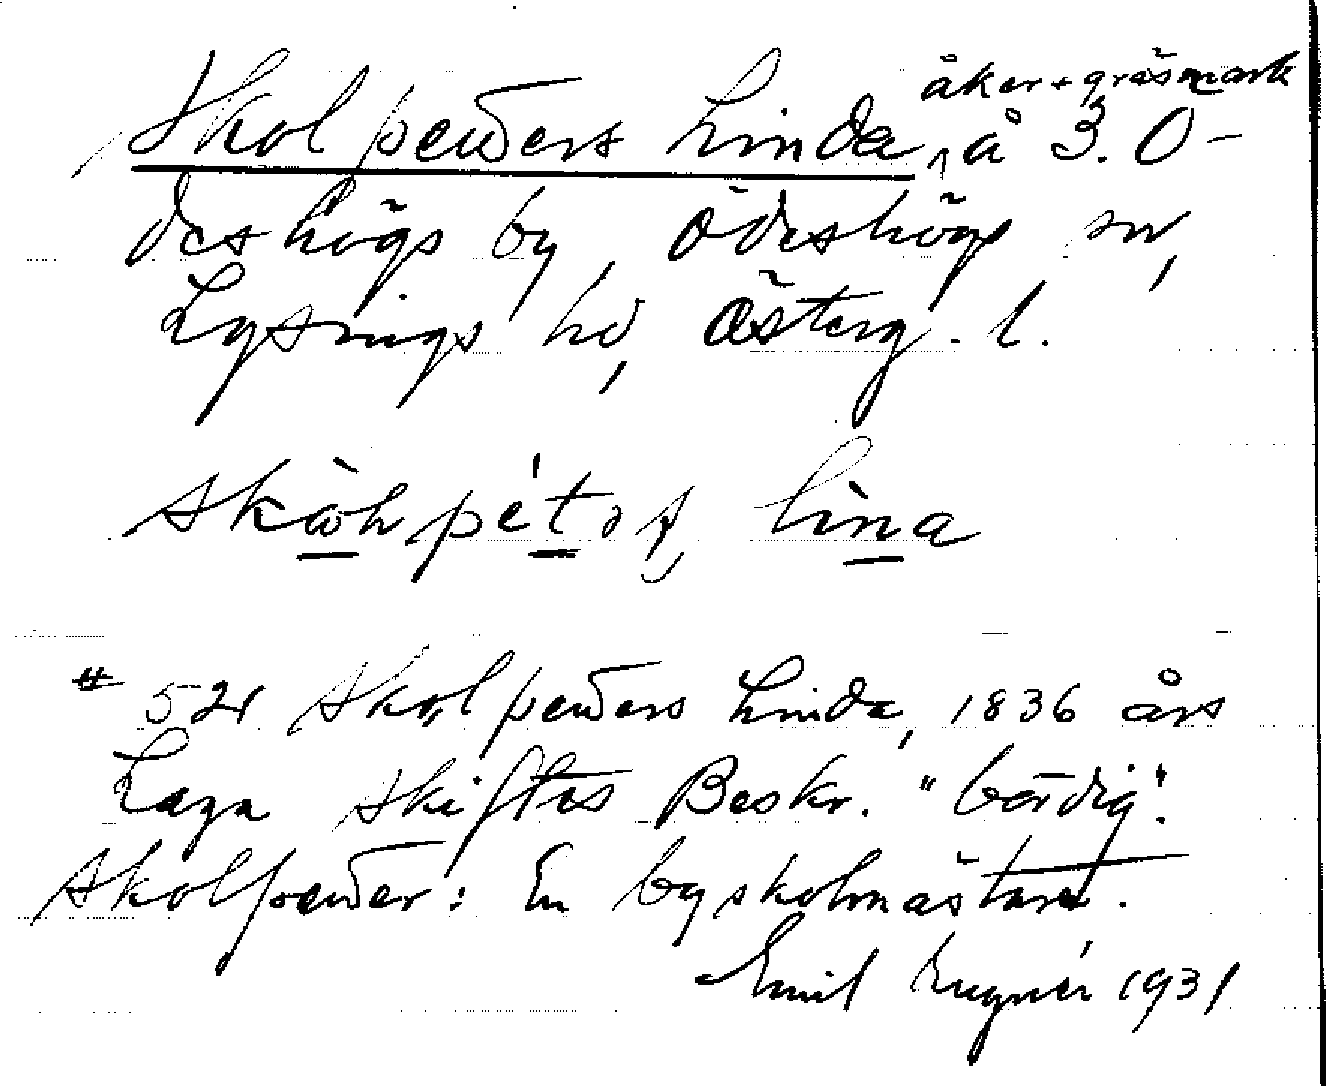 åker + gräsmark
Skolpeders Linda, å 3. Ö-
deshögs by, Ödeshögs sn,
Lysings hd, Österg. l.
lìna
# 521 Skolpeders Linda, 1836 års
Laga skiftes Beskr. "bördig".
Skolpeder: En byskolmästare.
Emil 1931